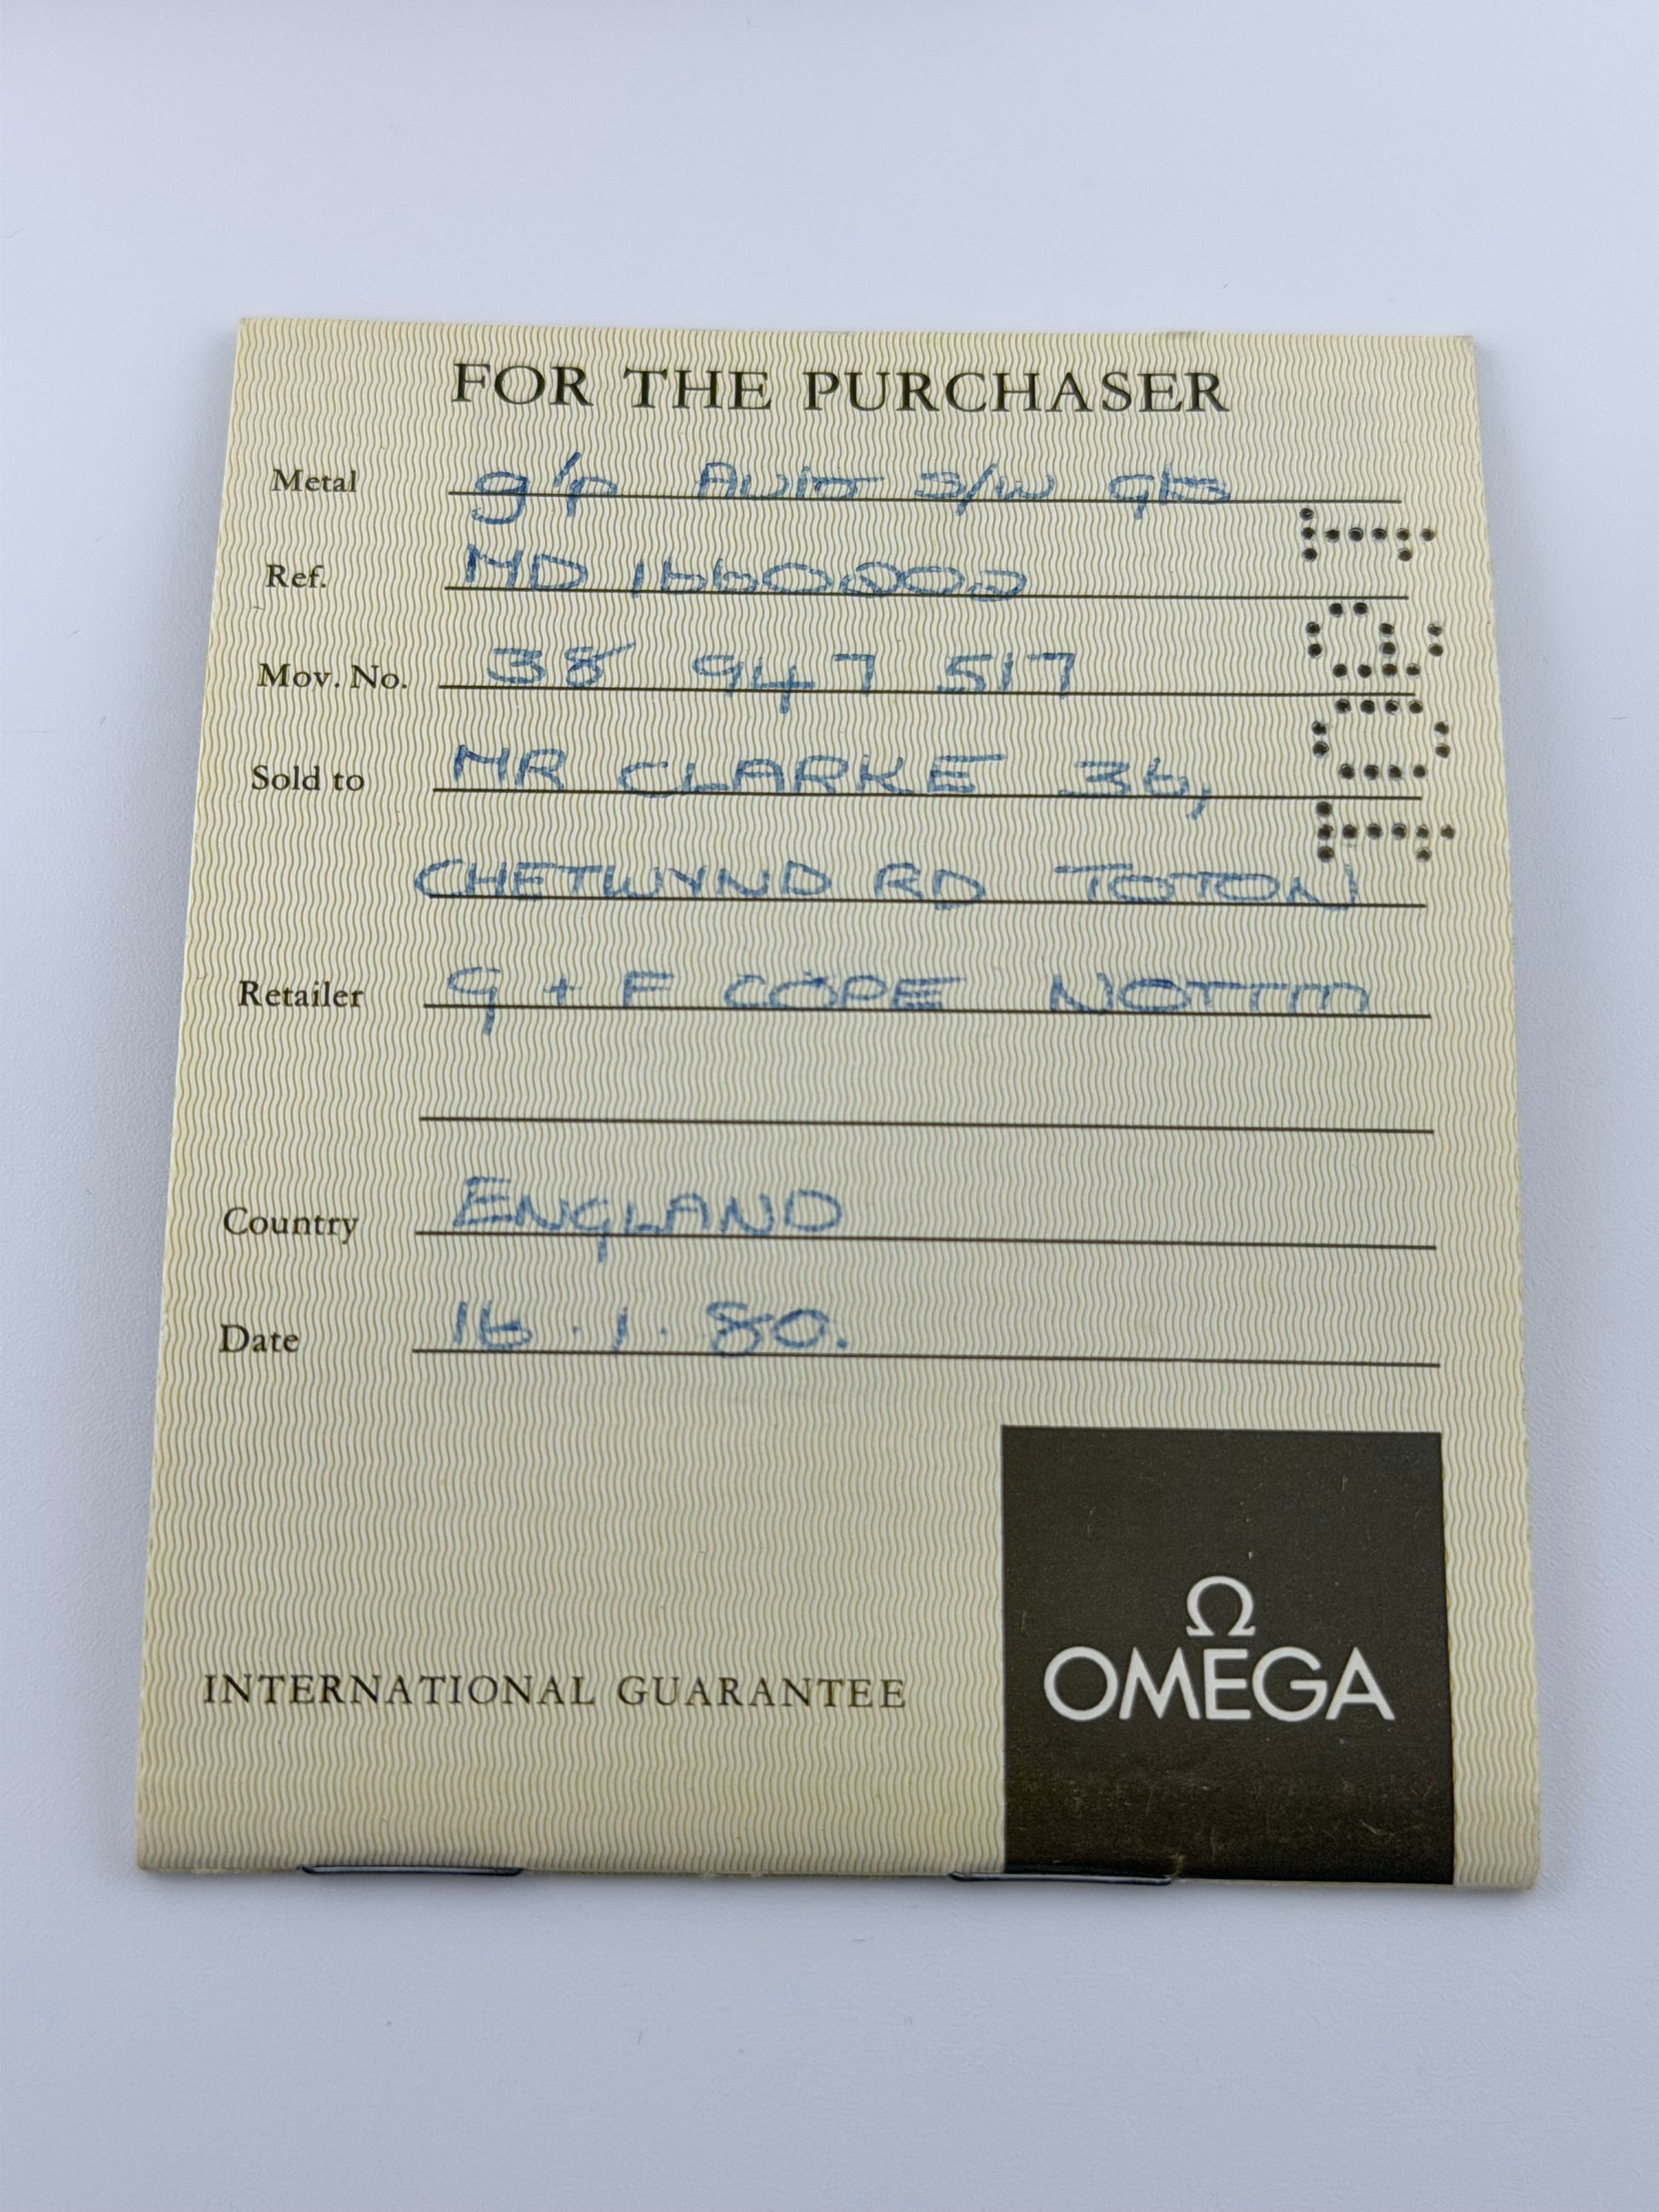 FOR THE PURCHASER
Metal g/p Auto s/w gts
Ref. MD 1660202
Mov. No. 38 947 517
Sold to MR CLARKE 36,
CHETWYND RD TOTON
Retailer G + F COPE NOTTM
Country ENGLAND
Date 16.1.80.
INTERNATIONAL GUARANTEE
Ω
OMEGA